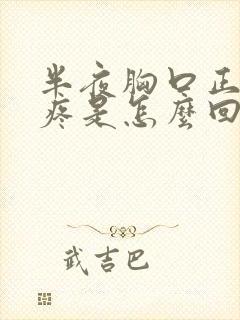 半夜胸口正
疼是怎麼回
武吉巴